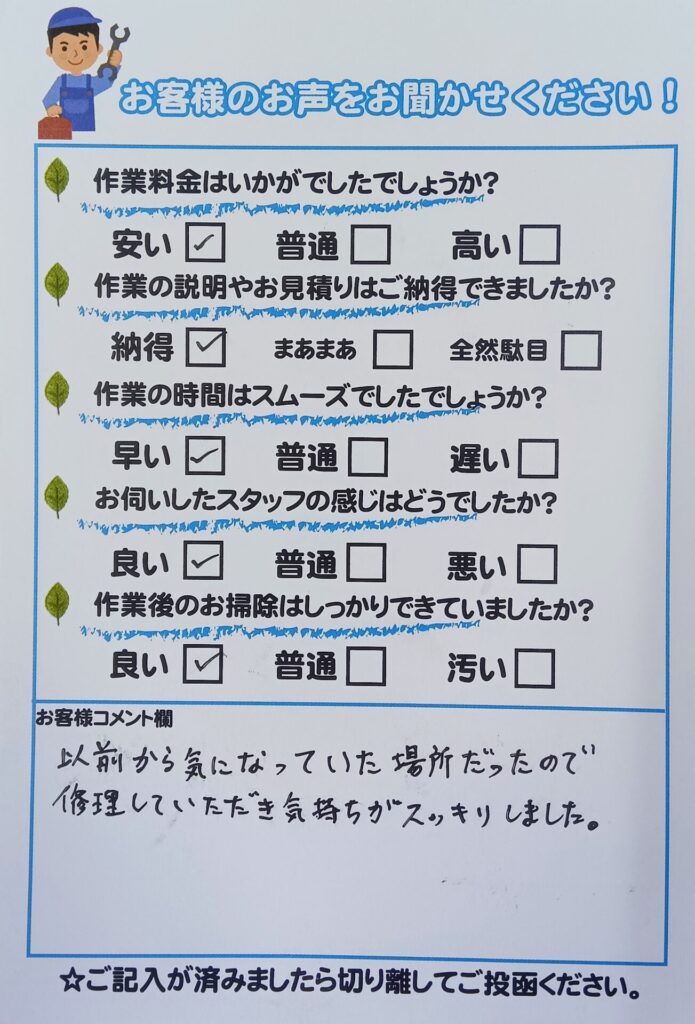 お客様のお声をお聞かせください！
作業料金はいかがでしたでしょうか？
安い ☑ 普通 □ 高い □
作業の説明やお見積りはご納得できましたか？
納得 ☑ まあまあ □ 全然駄目 □
作業の時間はスムーズでしたでしょうか？
早い ☑ 普通 □ 遅い □
お伺いしたスタッフの感じはどうでしたか？
良い ☑ 普通 □ 悪い □
作業後のお掃除はしっかりできていましたか？
良い ☑ 普通 □ 汚い □
お客様コメント欄
以前から気になっていた場所だったので
修理していただき気持ちがスッキリしました。
☆ご記入が済みましたら切り離してご投函ください。